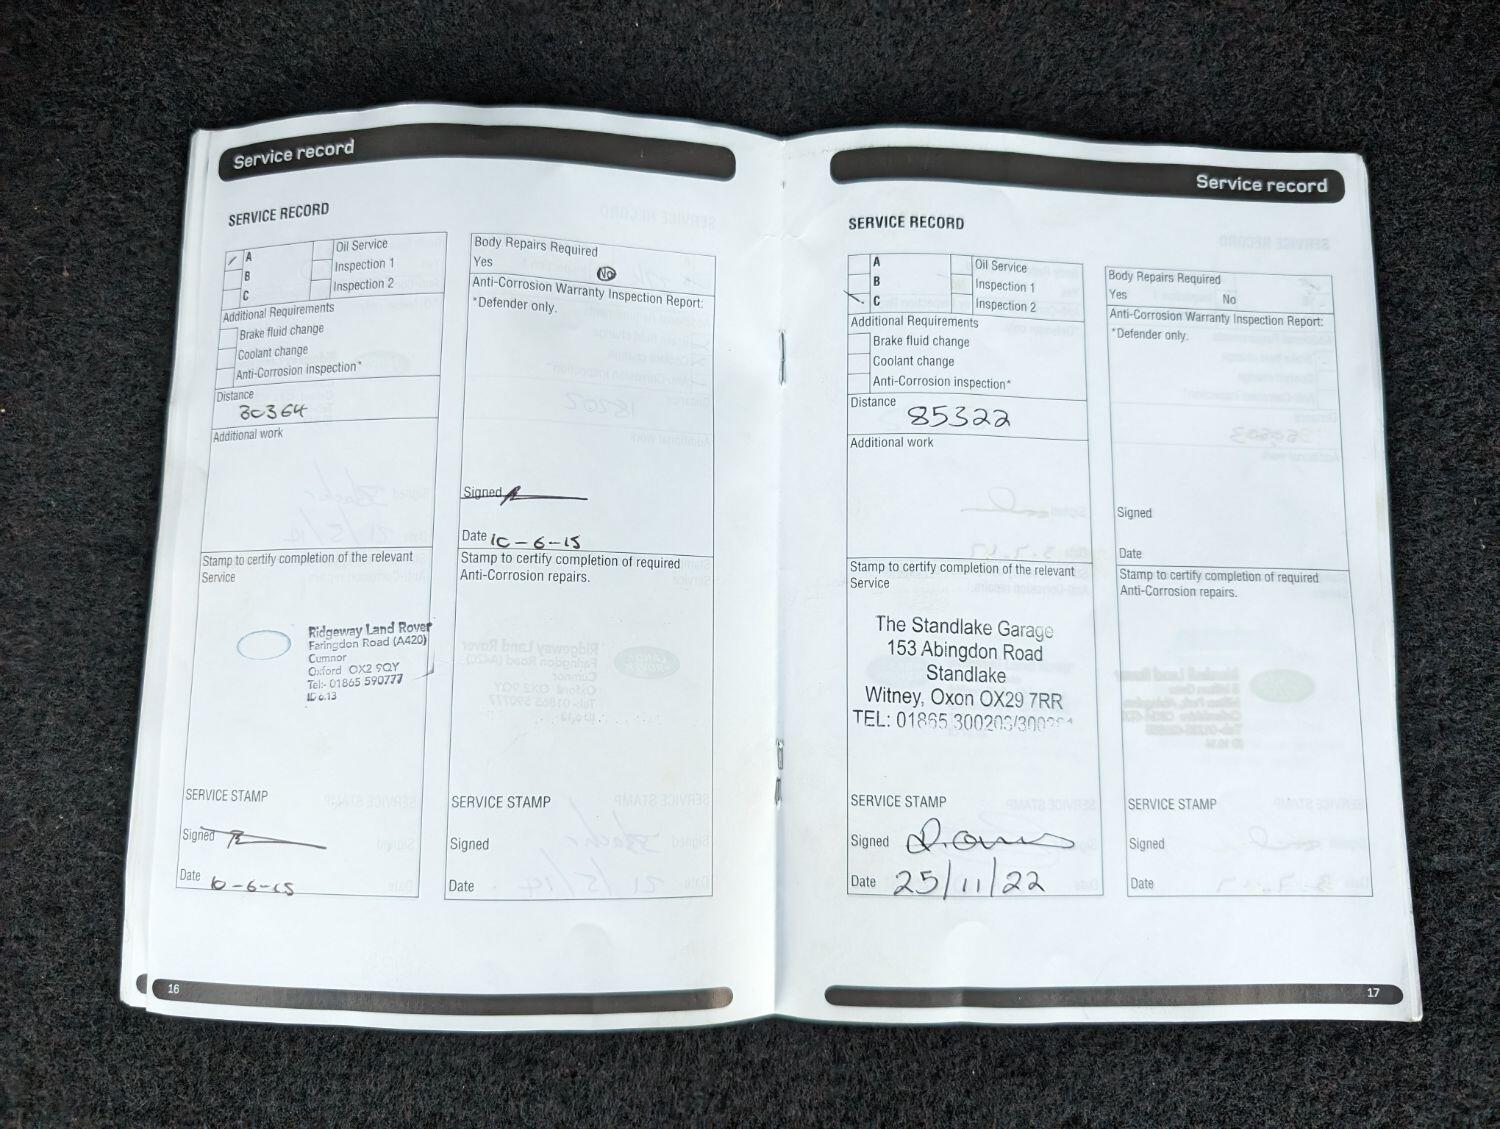 Service record
SERVICE RECORD
A
B
C
Oil Service
Inspection 1
Inspection 2
Additional Requirements
Brake fluid change
Coolant change
Anti-Corrosion inspection*
Distance
30364
Additional work
Stamp to certify completion of the relevant
Service
Ridgeway Land Rover
Faringdon Road (A420)
Cumnor
Oxford OX2 9QY
Tel:- 01865 590777
SERVICE STAMP
Signed
Date 10-6-15
Body Repairs Required
Yes No
Anti-Corrosion Warranty Inspection Report:
*Defender only.
Signed
Date 10-6-15
Stamp to certify completion of required
Anti-Corrosion repairs.
SERVICE STAMP
Signed
Date
16
Service record
SERVICE RECORD
A
B
C
Oil Service
Inspection 1
Inspection 2
Additional Requirements
Brake fluid change
Coolant change
Anti-Corrosion inspection*
Distance
85322
Additional work
Stamp to certify completion of the relevant
Service
The Standlake Garage
153 Abingdon Road
Standlake
Witney, Oxon OX29 7RR
TEL: 01865
SERVICE STAMP
Signed
Date 25/11/22
Body Repairs Required
Yes No
Anti-Corrosion Warranty Inspection Report:
*Defender only.
Signed
Date
Stamp to certify completion of required
Anti-Corrosion repairs.
SERVICE STAMP
Signed
Date
17